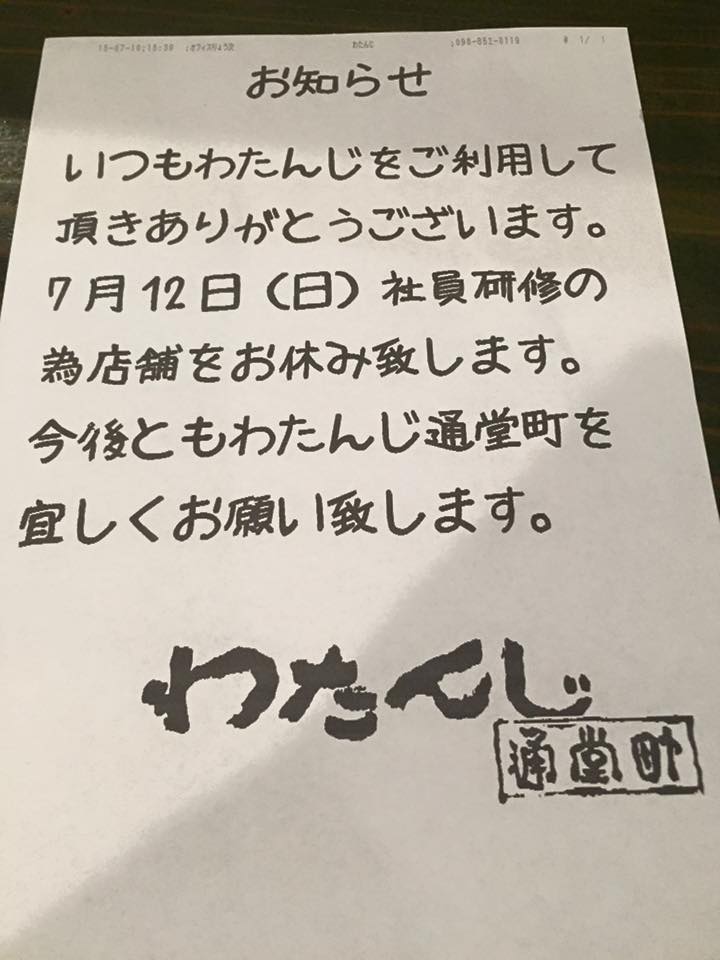 15-07-10;15:39 ;オフィスりょう次 わたんじ ;098-852-3119 # 1/ 1
お知らせ
いつもわたんじをご利用して
頂きありがとうございます。
7月12日（日）社員研修の
為店舗をお休み致します。
今後ともわたんじ通堂町を
宜しくお願い致します。
わたんじ
通堂町